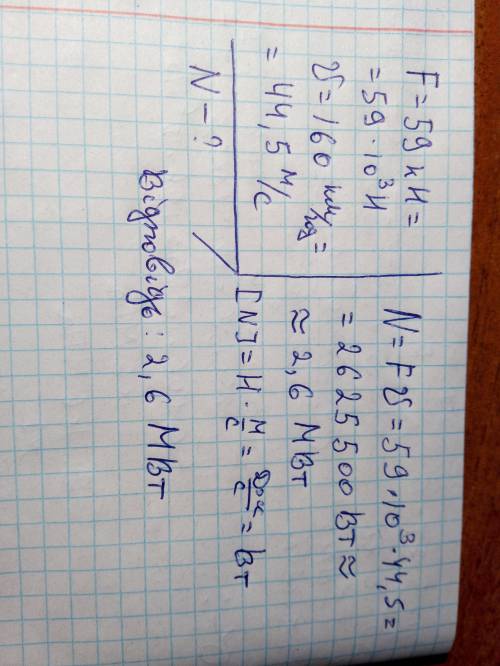 F = 59 кН =
= 59 · 10³ Н
υ = 160 км/год =
= 44,5 м/с
N – ?
N = Fυ = 59 · 10³ · 44,5 =
= 2625500 Вт ≈
≈ 2,6 МВт
[N] = Н · м/с = Дж/с = Вт
Відповідь: 2,6 МВт